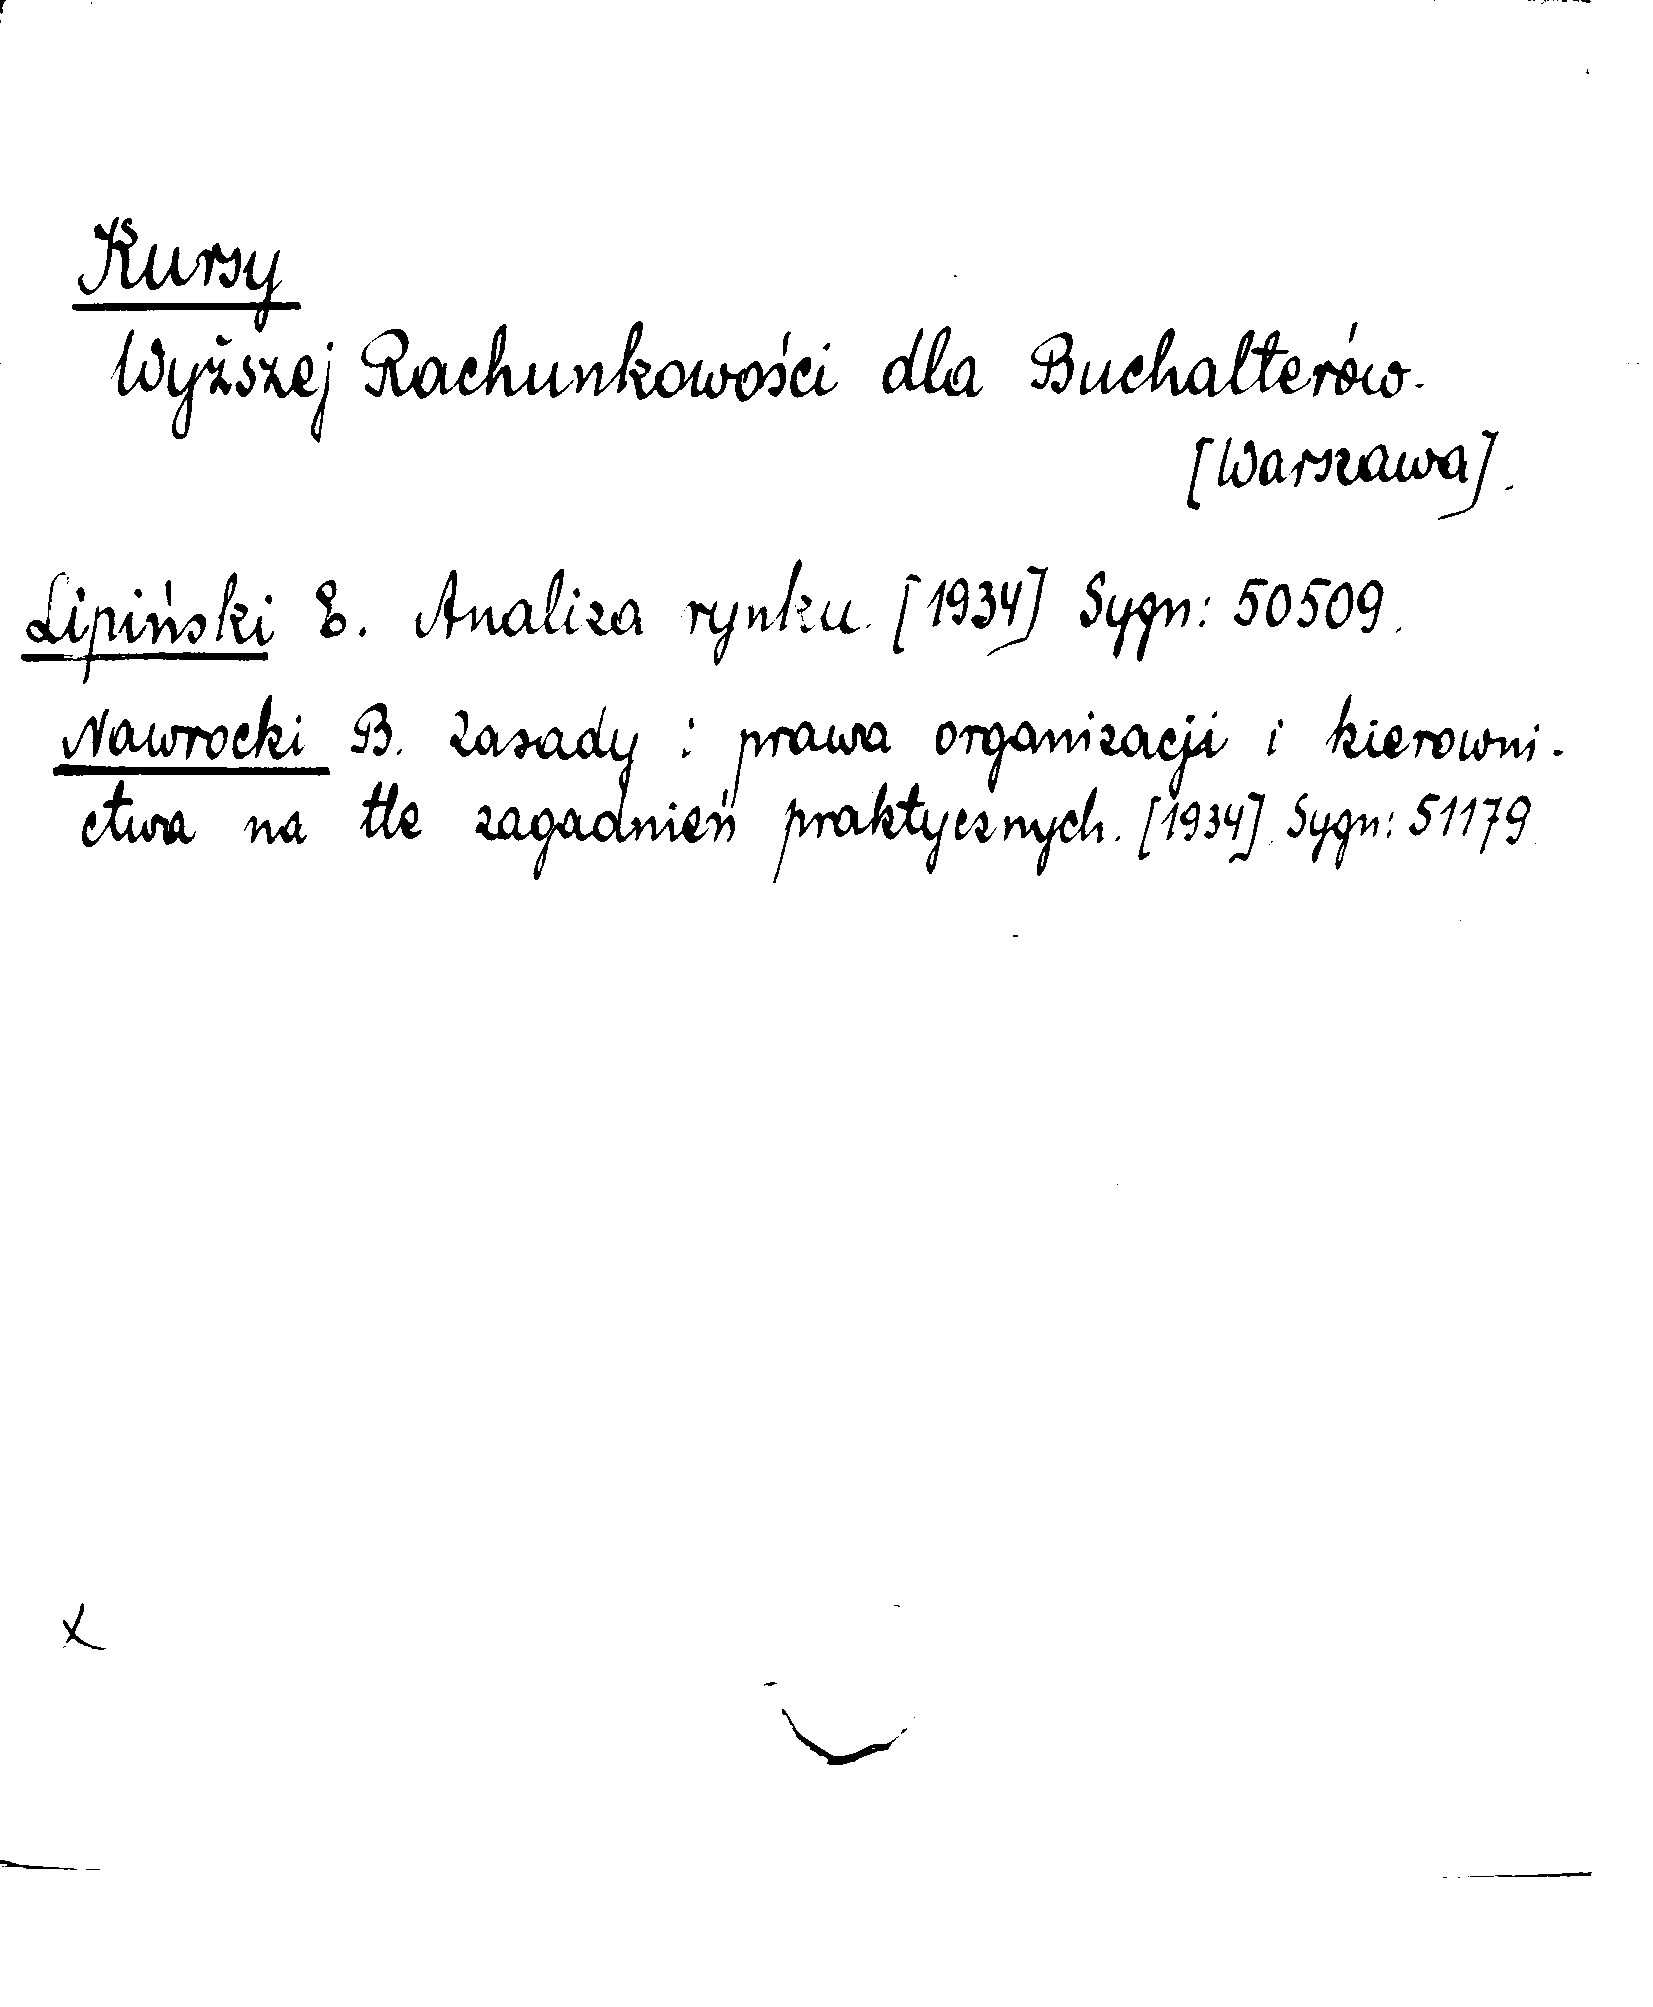 Kursy
Wyższej Rachunkowości dla Buchalterów.
[Warszawa].
Lipiński E. Analiza rynku. [1934] Sygn: 50509.
Nawrocki B. Zasady i prawa organizacji i kierowni-
ctwa na tle zagadnień praktycznych. [1934]. Sygn: 51179
x